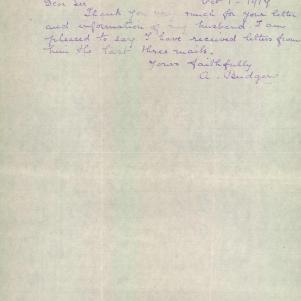 Dear Sir Oct 1 - 1919
Thank you very much for your letter
and information of my husband I am
pleased to say I have received letters from
him the last three mails.
Yours faithfully
A. Budgen